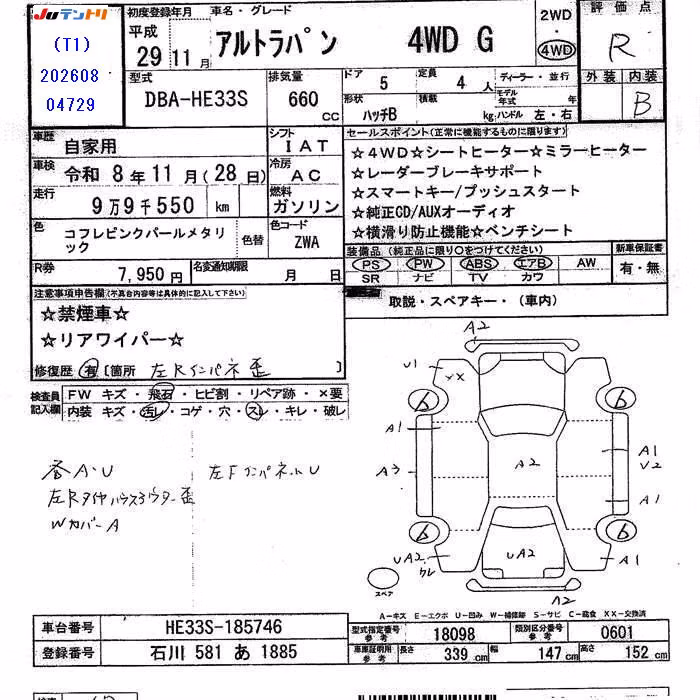 Juテントリ
(T1)
202608
04729
初度登録年月
平成
29 11月
車名・グレード
アルトラパン 4WD G
2WD
・
4WD
評価点
R
外装 内装
B
型式
DBA-HE33S
排気量
660 cc
ドア 5
定員 4人
ディーラー・並行
モデル年式 年
形状 ハッチB
積載 kg
ハンドル 左・右
車歴 自家用
シフト IAT
車検 令和 8年11月(28日)
冷房 AC
走行 9万9千550 km
燃料 ガソリン
色 コフレピンクパールメタリック
色替
色コード ZWA
R券 7,950円
名変通知期限 月 日
セールスポイント(正常に機能するものに限ります)
☆4WD☆シートヒーター☆ミラーヒーター
☆レーダーブレーキサポート
☆スマートキー/プッシュスタート
☆純正CD/AUXオーディオ
☆横滑り防止機能☆ベンチシート
装備品 (純正品に限り○をつけてください)
PS PW ABS エアB AW
SR ナビ TV カワ
新車保証書
有・無
取説・スペアキー・(車内)
注意事項申告欄(不具合内容等は具体的に記入して下さい)
☆禁煙車☆
☆リアワイパー☆
修復歴 有 [箇所 左Rインパネ歪 ]
検査員記入欄
FW キズ・飛石・ヒビ割・リペア跡・×要
内装 キズ・汚レ・コゲ・穴・スレ・キレ・破レ
各A・U
左Fインパネル U
左Rタイヤハウスアウター歪
WカバーA
A2
U1
XX
6
6
A1
A3
A2
A1
U2
A1
6
6
UA2
クレ
UA2
A1
A2
スペア
A-キズ E-エクボ U-凹み W-補修跡 S-サビ C-腐食 XX-交換済
車台番号 HE33S-185746
登録番号 石川 581 あ 1885
型式指定番号 参考 18098
類別区分番号 参考 0601
車庫証明用 参考
長さ 339 cm
幅 147 cm
高さ 152 cm